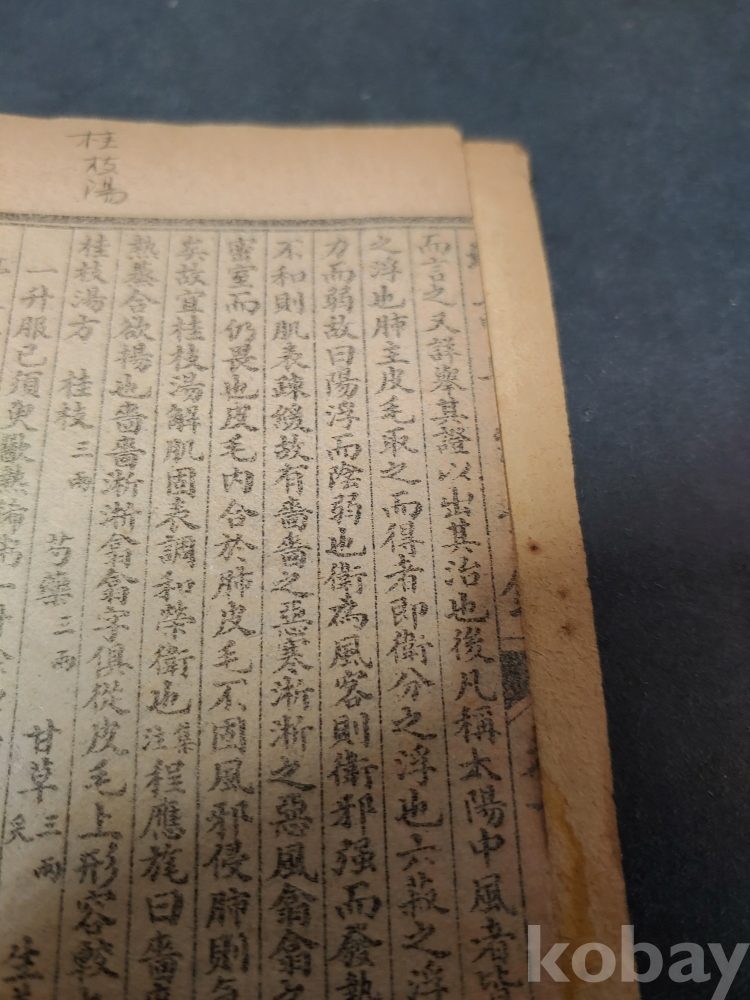 桂枝湯
而言之又詳舉其證以出其治也後凡稱太陽中風者皆
之浮也肺主皮毛取之而得者即衛分之浮也六菽之浮
力而弱故曰陽浮而陰弱也衛為風客則衛邪强而發熱
不和則肌表疎緩故有嗇嗇之惡寒淅淅之惡風翕翕之
密室而仍畏也皮毛內合於肺皮毛不固風邪侵肺則气
矣故宜桂枝湯解肌固表調和榮衛也集注程應旄曰嗇嗇
熱甚含欲揚也嗇嗇淅淅翕翕字俱從皮毛上形容較
桂枝湯方 桂枝三兩 芍藥三兩 甘草三兩炙 生
一升服已須臾歠熱稀粥一
kobay